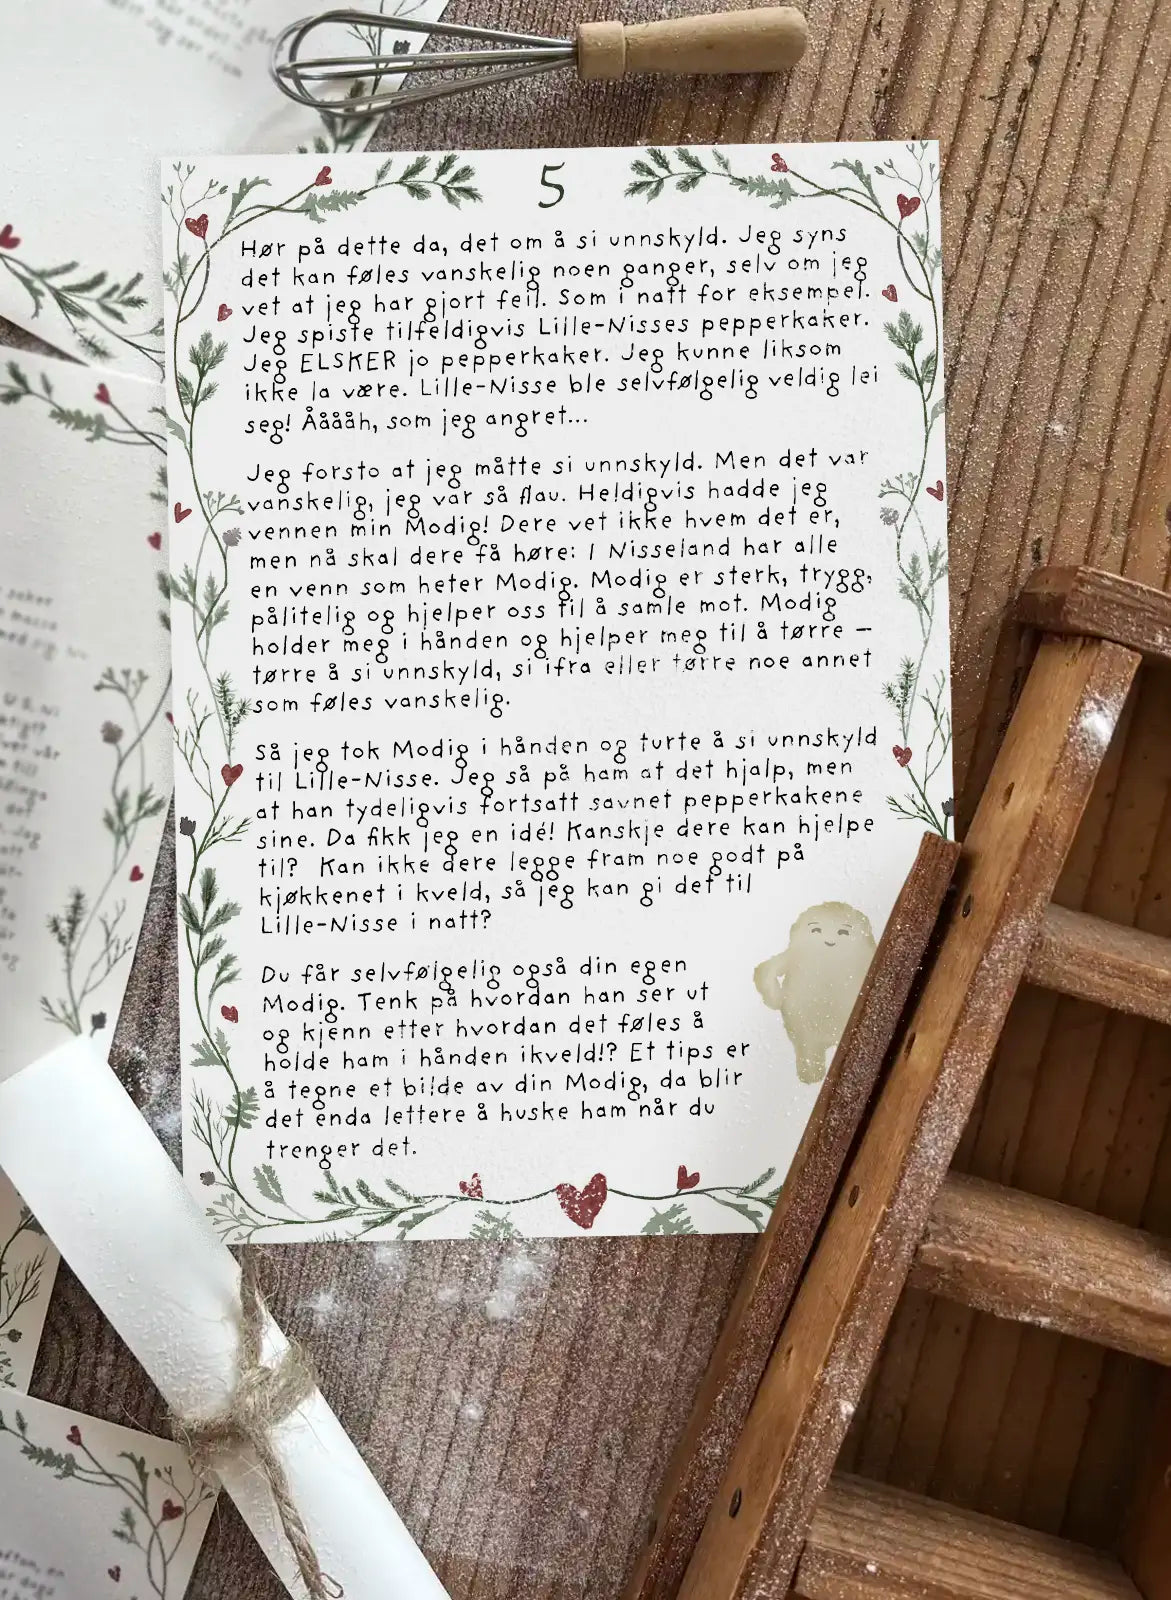 5
Hør på dette da, det om å si unnskyld. Jeg syns
det kan føles vanskelig noen ganger, selv om jeg
vet at jeg har gjort feil. Som i natt for eksempel.
Jeg spiste tilfeldigvis Lille-Nisses pepperkaker.
Jeg ELSKER jo pepperkaker. Jeg kunne liksom
ikke la være. Lille-Nisse ble selvfølgelig veldig lei
seg! Ååååh, som jeg angret...
Jeg forsto at jeg måtte si unnskyld. Men det var
vanskelig, jeg var så flau. Heldigvis hadde jeg
vennen min Modig! Dere vet ikke hvem det er,
men nå skal dere få høre: I Nisseland har alle
en venn som heter Modig. Modig er sterk, trygg,
pålitelig og hjelper oss til å samle mot. Modig
holder meg i hånden og hjelper meg til å tørre –
tørre å si unnskyld, si ifra eller tørre noe annet
som føles vanskelig.
Så jeg tok Modig i hånden og turte å si unnskyld
til Lille-Nisse. Jeg så på ham at det hjalp, men
at han tydeligvis fortsatt savnet pepperkakene
sine. Da fikk jeg en idé! Kanskje dere kan hjelpe
til? Kan ikke dere legge fram noe godt på
kjøkkenet i kveld, så jeg kan gi det til
Lille-Nisse i natt?
Du får selvfølgelig også din egen
Modig. Tenk på hvordan han ser ut
og kjenn etter hvordan det føles å
holde ham i hånden ikveld!? Et tips er
å tegne et bilde av din Modig, da blir
det enda lettere å huske ham når du
trenger det.